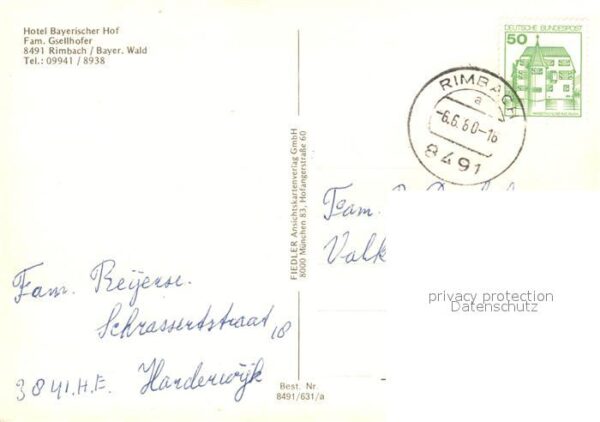 Hotel Bayerischer Hof
Fam. Gsellhofer
8491 Rimbach / Bayer. Wald
Tel.: 09941 / 8938
DEUTSCHE BUNDESPOST
50
RIMBACH
a
-6.6.80-16
8491
FIEDLER Ansichtskartenverlag GmbH
8000 München 83, Hofangerstraße 60
Fam.
Valk
privacy protection
Datenschutz
Fam. Reijerse.
Schrassertstraat 18
3841.H.E. Harderwijk
Best. Nr.
8491/631/a